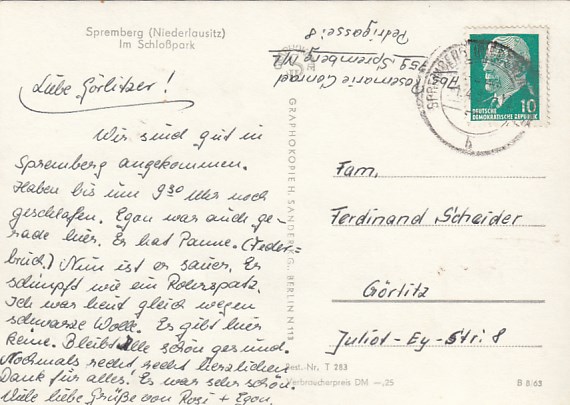 Spremberg (Niederlausitz)
Im Schloßpark
Liebe Görlitzer!
Wir sind gut in
Spremberg angekommen.
Haben bis um 9³⁰ Uhr noch
geschlafen. Egon war auch ge-
rade hier. Er hat Panne. (Feder-
bruch.) Nun ist er sauer. Er
schimpft wie ein Rohrspatz.
Ich war heut gleich wegen
schwarze Wolle. Es gibt hier
keine. Bleibt alle schön gesund.
Nochmals recht, recht herzlichen
Dank für alles. Es war sehr schön.
Viele liebe Grüße von Rosi + Egon.
Rosemarie Conrad
759 Spremberg N/L
Petrigasse 8
GRAPHOKOPIE H. SANDER KG., BERLIN N 113
10
DEUTSCHE
DEMOKRATISCHE REPUBLIK
SPREMBERG
h
Fam.
Ferdinand Scheider
Görlitz
Juliot-Ey-Str. 8
Best.-Nr. T 283
Verbraucherpreis DM —,25
B 8/63